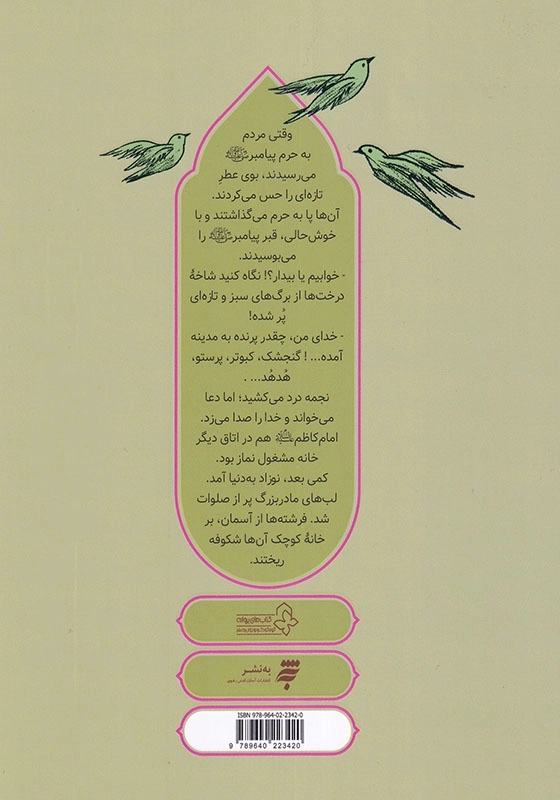 وقتی مردم
به حرم پیامبرﷺ
می‌رسیدند، بوی عطرِ
تازه‌ای را حس می‌کردند.
آن‌ها پا به حرم می‌گذاشتند و با
خوش‌حالی، قبر پیامبرﷺ را
می‌بوسیدند.
- خوابیم یا بیدار؟! نگاه کنید شاخهٔ
درخت‌ها از برگ‌های سبز و تازه‌ای
پُر شده!
- خدای من، چقدر پرنده به مدینه
آمده... ! گنجشک، کبوتر، پرستو،
هُدهُد... .
نجمه درد می‌کشید؛ اما دعا
می‌خواند و خدا را صدا می‌زد.
امام‌کاظم هم در اتاق دیگر
خانه مشغول نماز بود.
کمی بعد، نوزاد به‌دنیا آمد.
لب‌های مادربزرگ پر از صلوات
شد. فرشته‌ها از آسمان، بر
خانهٔ کوچک آن‌ها شکوفه
ریختند.
کتاب‌های پروانه
به‌نشر
انتشارات آستان قدس رضوی
ISBN 978-964-02-2342-0
9 789640 223420